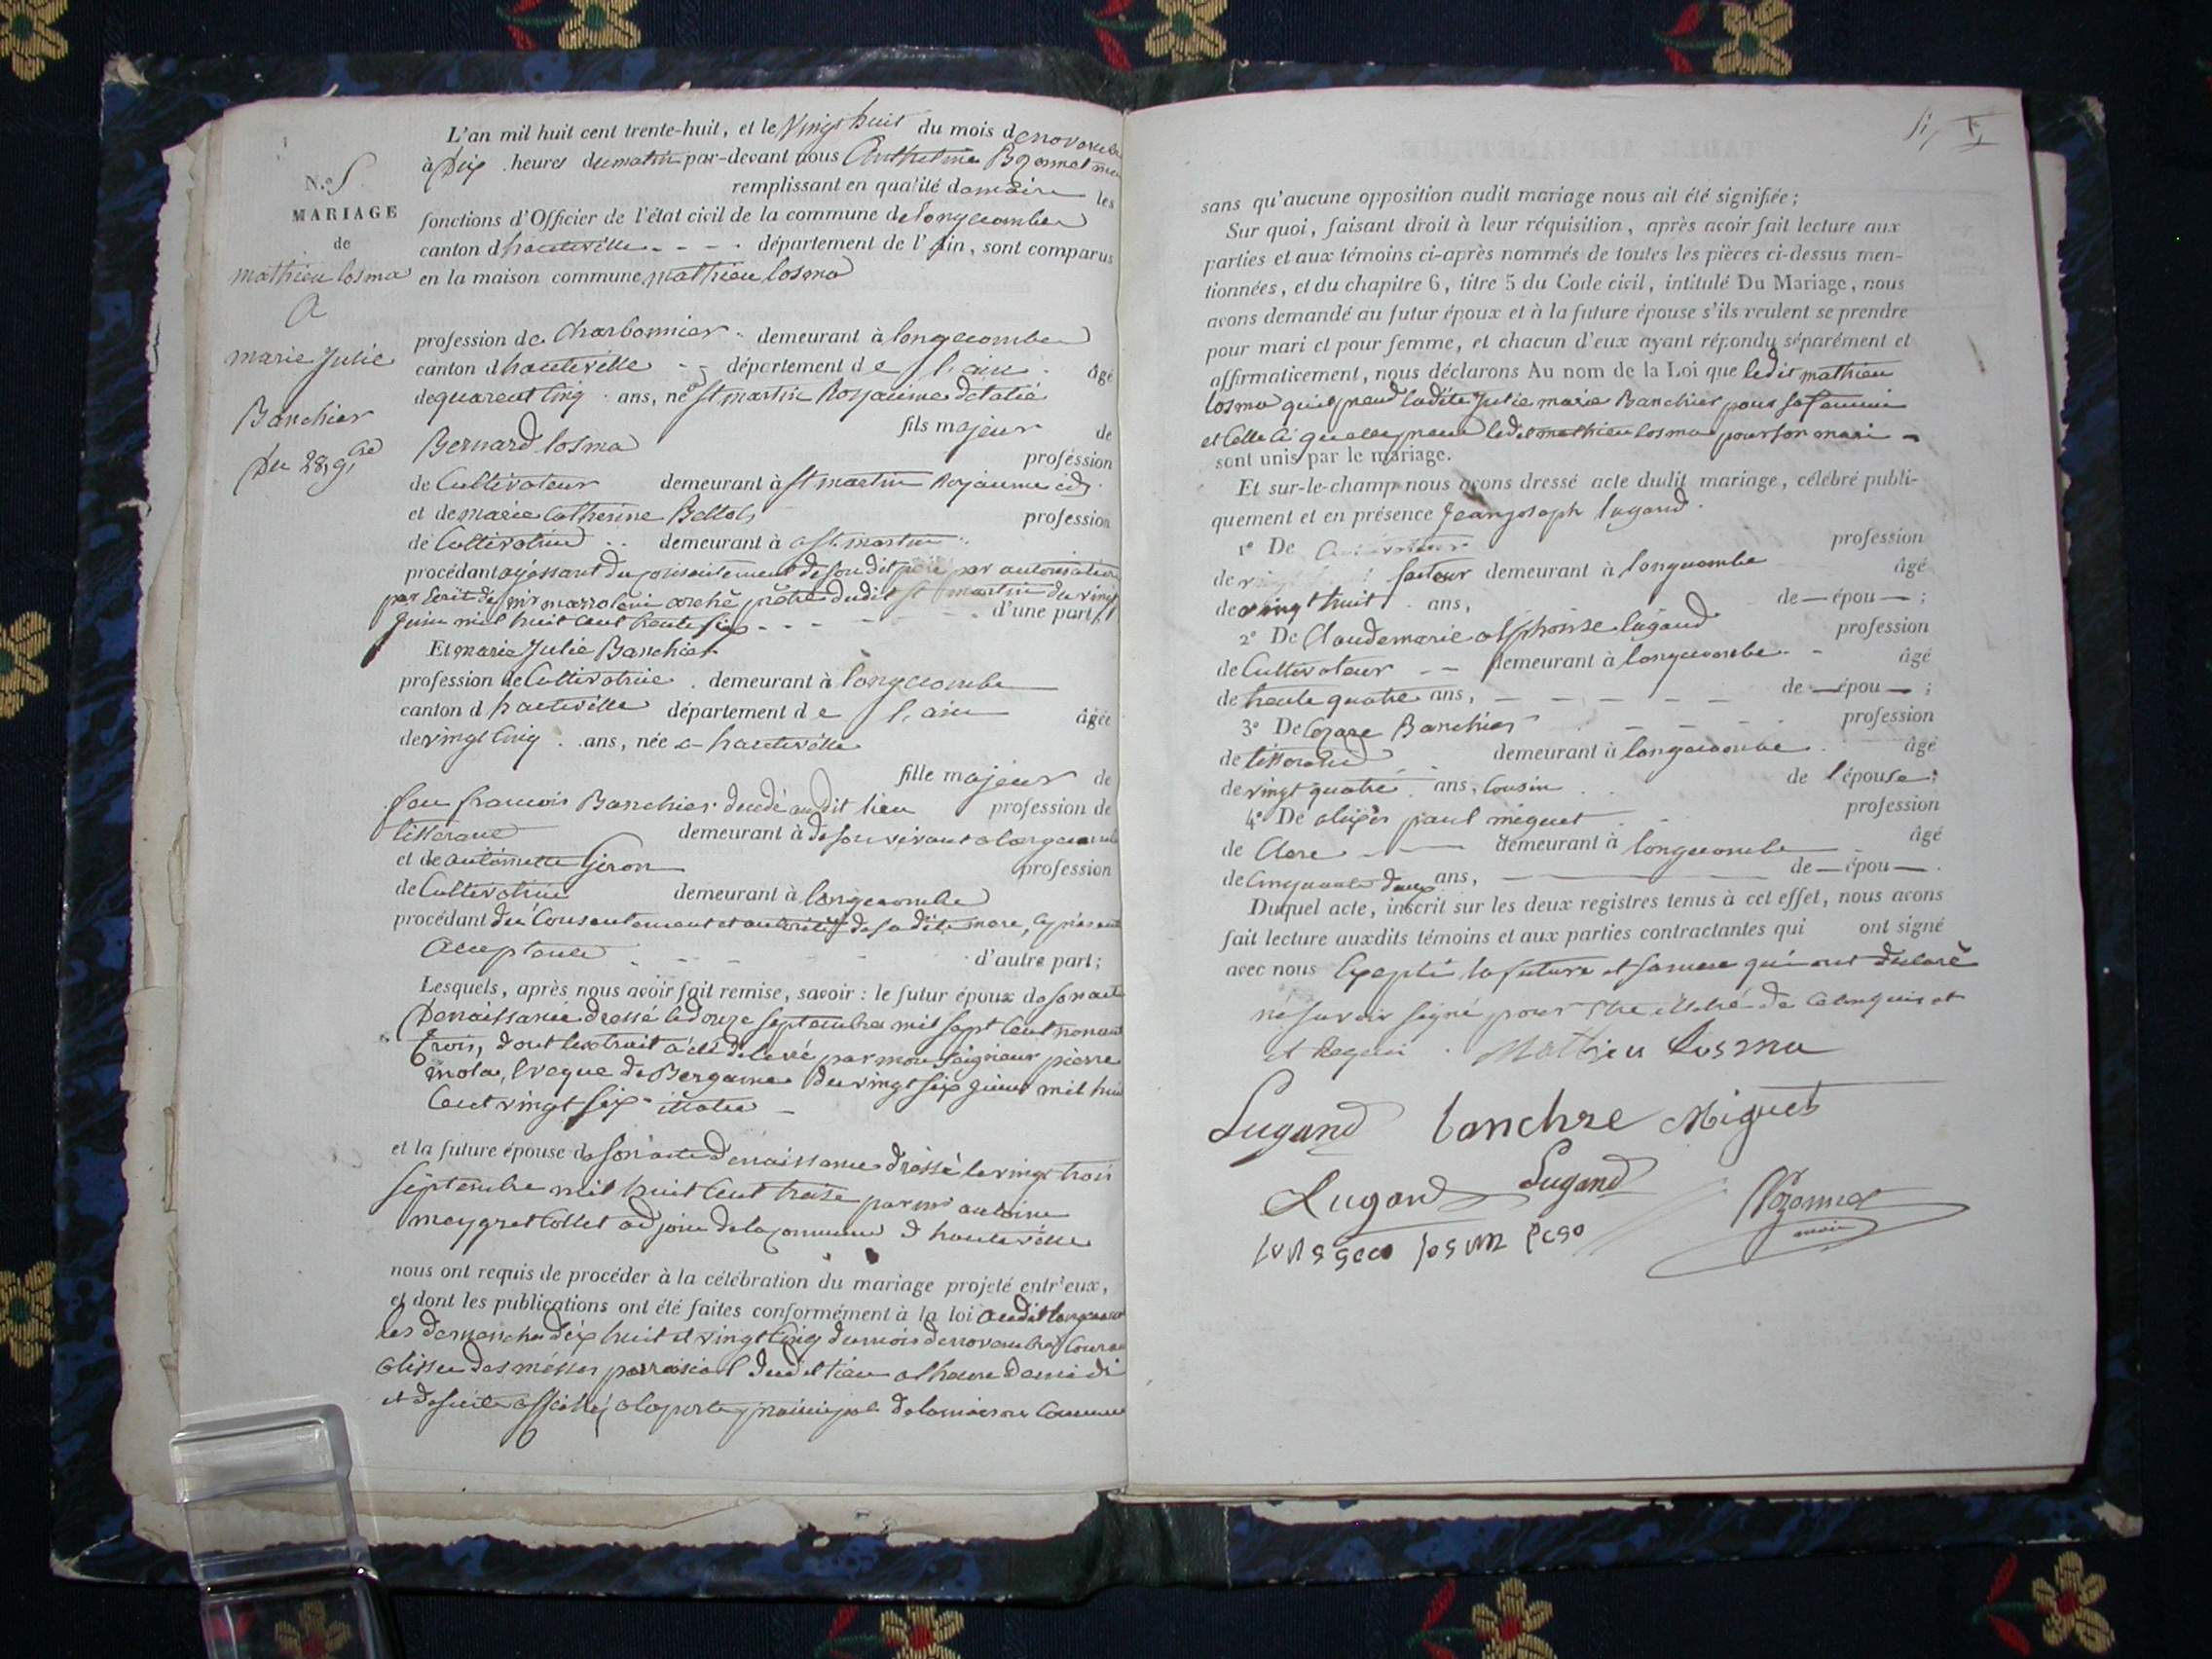 L'an mil huit cent trente-huit, et le Vingt huit du mois de novembre
à Dix heures du matin par-devant nous Anthelme
N.o 5
remplissant en qualité de maire les
MARIAGE
fonctions d'Officier de l'état civil de la commune de longecombe
de
canton d hauteville - - - département de l'Ain, sont comparus
mathieu losma
en la maison commune, mathieu losma
a
profession de Charbonnier demeurant à longecombe
marie Julie
canton d hauteville - - département d e l'ain âgé
de quarent Cinq ans, né a St martin Royaume ditalie
Banchier
fils majeur de
Bernard losma profession
Du 28 9bre
de Cultivateur demeurant à St martin Royaume
et de marie Catherine profession
de Cultivatrice demeurant à a St. martin
procédant agissant du consentement de son dit père par autorisation
par Ecrit de prêtre dudit St martin du vingt
Juin mil huit cent trente six - - - d'une part;
Et marie Julie Banchier
profession de Cultivatrice demeurant à longecombe
canton d hauteville département d e l'ain âgée
de vingt Cinq ans, née a hauteville
fille majeur de
feu francois Banchier décédé audit lieu profession de
demeurant à de son vivant a longecombe
et de Giron profession
de Cultivatrice demeurant à longecombe
procédant du Consentement et de sa dite mere, Cy présente
acceptante - - - d'autre part;
Lesquels, après nous avoir fait remise, savoir: le futur époux de son acte
De naissance dressé le douze septembre mil sept Cent nonante
trois, dont lextrait a été délivré par mon seigneur pierre
mola, Eveque de Bergame du vingt six mil huit
Cent vingt six
et la future épouse de son acte de naissance dressé le vingt trois
septembre mil huit Cent treise par mr antoine
meygret Collet adjoin de la Commune d hauteville
nous ont requis de procéder à la célébration du mariage projeté entr'eux,
et dont les publications ont été faites conformément à la loi audit longecombe
les demenche dix huit et vingt Cinq du mois de novembre Courant
a lissue des messes parroisial dudit lieu a lheure de midi
et de suite affiché a la porte principale de la maison Commune
sans qu'aucune opposition audit mariage nous ait été signifiée;
Sur quoi, faisant droit à leur réquisition, après avoir fait lecture aux
parties et aux témoins ci-après nommés de toutes les pièces ci-dessus men-
tionnées, et du chapitre 6, titre 5 du Code civil, intitulé Du Mariage, nous
avons demandé au futur époux et à la future épouse s'ils veulent se prendre
pour mari et pour femme, et chacun d'eux ayant répondu séparément et
affirmativement, nous déclarons Au nom de la Loi que ledit mathieu
losma quil prend ladite Julie marie Banchier pour sa femme
et Celle Ci quelle prend ledit mathieu losma pour son mari -
sont unis par le mariage.
Et sur-le-champ nous avons dressé acte dudit mariage, célébré publi-
quement et en présence Jean joseph lugand
1o De profession
de facteur demeurant à longecombe âgé
de vingt huit ans, de — épou — ;
2o De Claude marie alphonse lugand profession
de Cultivateur - - demeurant à longecombe - âgé
de trente quatre ans, - - - - de — épou — ;
3o De Banchier - - - profession
de demeurant à longecombe âgé
de vingt quatre ans, Cousin de l'épouse;
4o De paul miguet profession
de demeurant à longecombe âgé
de Cinquante deux ans, de — épou — .
Duquel acte, inscrit sur les deux registres tenus à cet effet, nous avons
fait lecture auxdits témoins et aux parties contractantes qui ont signé
avec nous Excepté la future et sa mere qui ont déclaré
ne savoir signé pour être de Ce enquis et
et Requis . Mathieu Losma
Lugand banchre Miguet
Lugand Lugand
maire